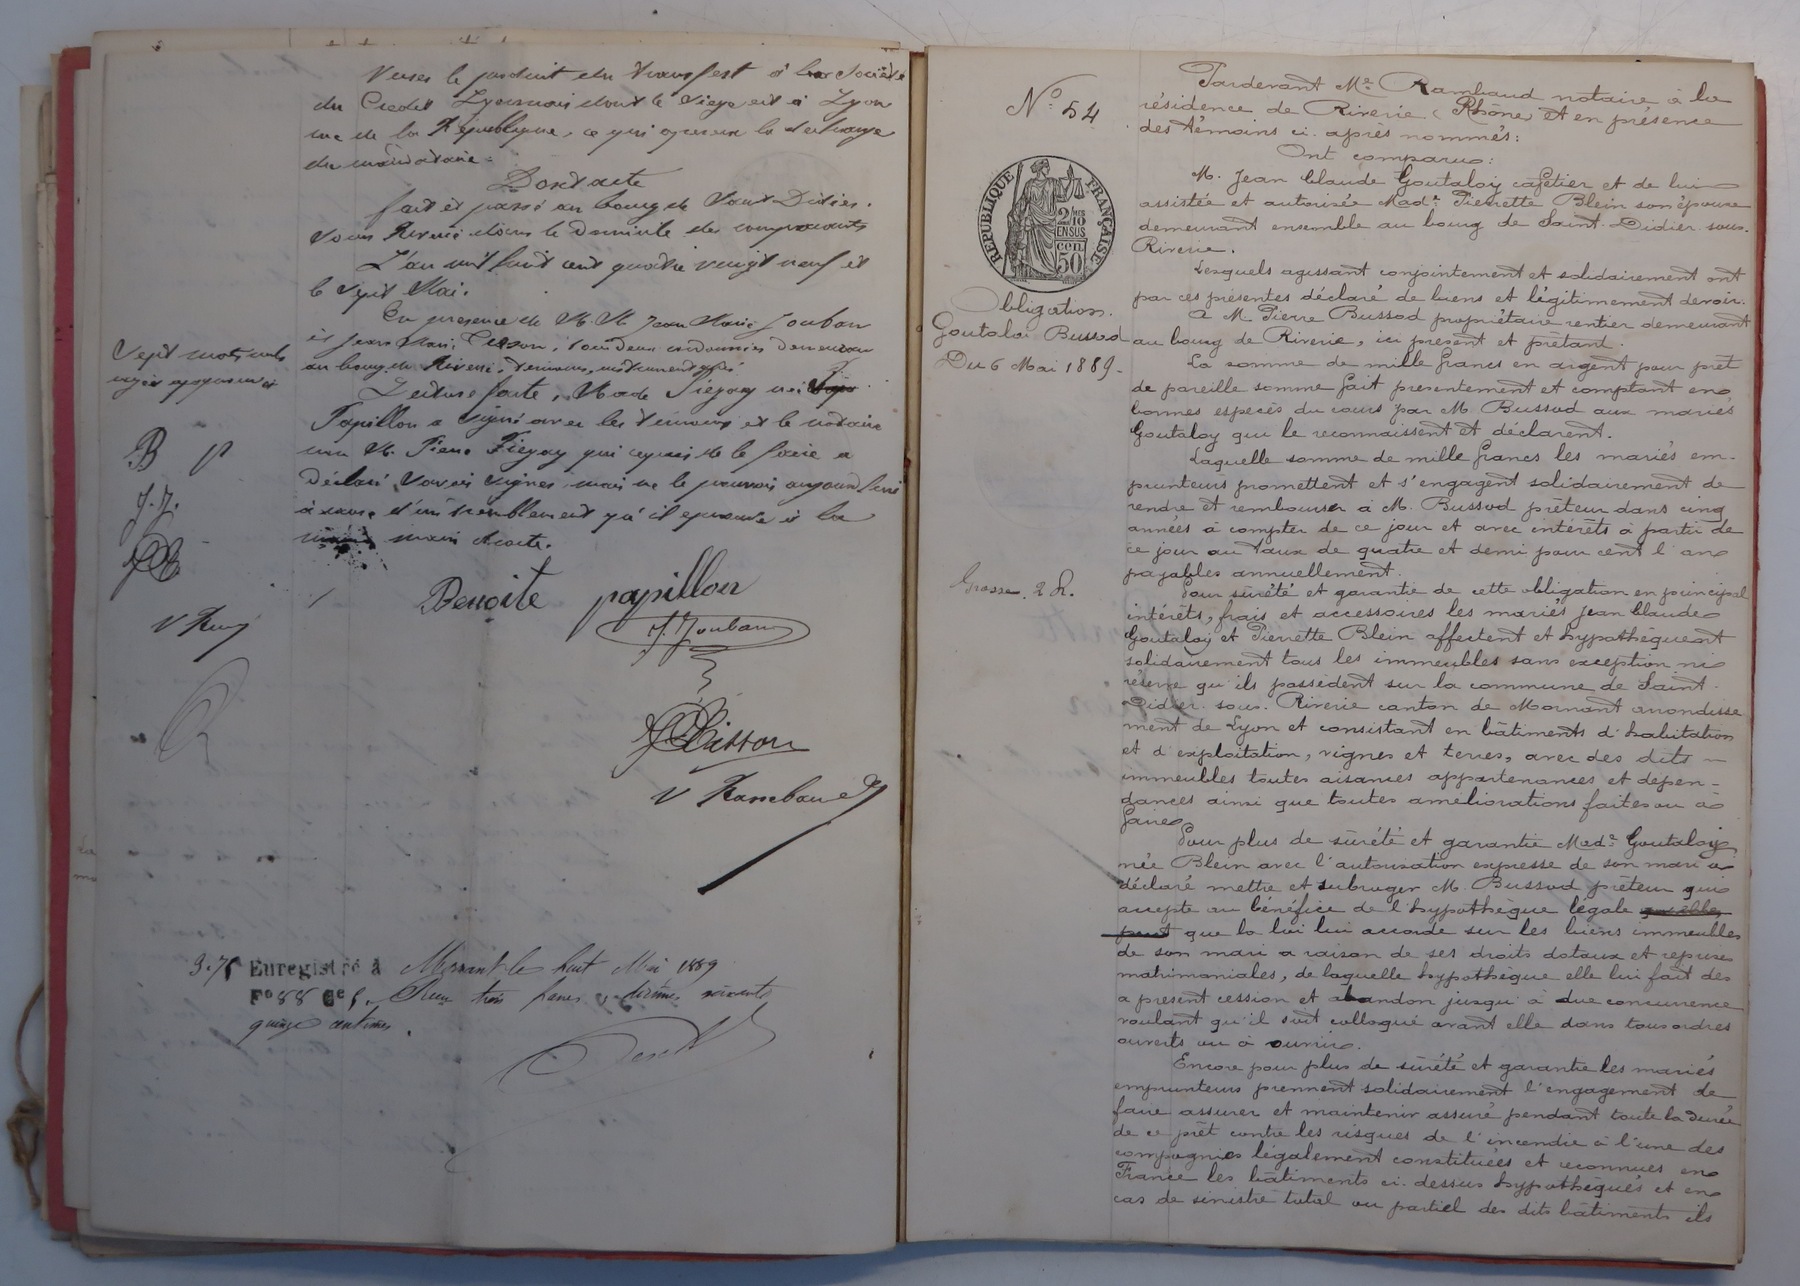 Verser le produit du transfert à la Société
du Credit Lyonnais dont le siege est à Lyon
rue de la République, ce qui operera la decharge
du mandataire.
Dont acte
fait et passé au bourg de Saint Didier
sous Riverie dans le domicile des comparants
L'an mil huit cent quatre vingt neuf et
le sept Mai.
En presence de M. M Jean Marie Jouban
et Jean Marie, tous deux cordonniers demeurant
au bourg de Riverie, témoins
Lecture faite, Made Piegay née
Papillon a signé avec les témoins et le notaire
non M. Pierre Piegay qui requis de le faire a
déclaré savoir signer mais ne le pouvoir aujourd'hui
à cause d'un tremblement qu'il eprouve à la
main droite.
Sept mots nuls
B P
J. J.
V Ramb
Benoite papillon
J. Jouban
V Rambaud
3.75 Enregistré à Mornant le huit Mai 1889
F° 88 Ce 5. Reçu trois francs décimes soixante
quinze centimes.
N° 54
REPUBLIQUE FRANÇAISE
2/10 EN SUS
50 cen
Obligation.
Goutaloi Bussod
Du 6 Mai 1889.
Grosse 2 R.
Pardevant Me Rambaud notaire à la
résidence de Riverie (Rhône) et en présence
des témoins ci-après nommés:
Ont comparu:
M. Jean Claude Goutaloy cafetier et de lui
assistée et autorisée Made Pierrette Blein son épouse
demeurant ensemble au bourg de Saint-Didier-sous-
Riverie.
Lesquels agissant conjointement et solidairement ont
par ces présentes déclaré de biens et légitimement devoir.
A M. Pierre Bussod propriétaire rentier demeurant
au bourg de Riverie, ici présent et prêtant.
La somme de mille francs en argent pour prêt
de pareille somme fait presentement et comptant en
bonnes espèces du cours par M. Bussod aux mariés
Goutaloy qui le reconnaissent et déclarent.
Laquelle somme de mille francs les mariés em-
prunteurs promettent et s'engagent solidairement de
rendre et rembourser à M. Bussod prêteur dans cinq
années à compter de ce jour et avec intérêts à partir de
ce jour au taux de quatre et demi pour cent l'an
payables annuellement.
Pour sûreté et garantie de cette obligation en principal
intérêts, frais et accessoires les mariés Jean Claude
Goutaloy et Pierrette Blein affectent et hypothèquent
solidairement tous les immeubles sans exception ni
réserve qu'ils possèdent sur la commune de Saint-
Didier-sous-Riverie canton de Mornant arrondisse
ment de Lyon et consistant en bâtiments d'habitation
et d'exploitation, vignes et terres, avec des dits
immeubles toutes aisances appartenances et depen-
dances ainsi que toutes améliorations faites ou à
faire
Pour plus de sûreté et garantie Made Goutaloy
née Blein avec l'autorisation expresse de son mari a
déclaré mettre et subroger M. Bussod prêteur qui
accepte au bénéfice de l'hypothèque légale
que la loi lui accorde sur les biens immeubles
de son mari a raison de ses droits dotaux et reprises
matrimoniales, de laquelle hypothèque elle lui fait dès
a présent cession et abandon jusqu'à due concurrence
voulant qu'il soit colloqué avant elle dans tous ordres
ouverts ou à ouvrir.
Encore pour plus de sûreté et garantie les mariés
emprunteurs prennent solidairement l'engagement de
faire assurer et maintenir assuré pendant toute la durée
de ce prêt contre les risques de l'incendie à l'une des
compagnies légalement constituées et reconnues en
France les bâtiments ci-dessus hypothéqués et en
cas de sinistre total ou partiel des dits bâtiments ils